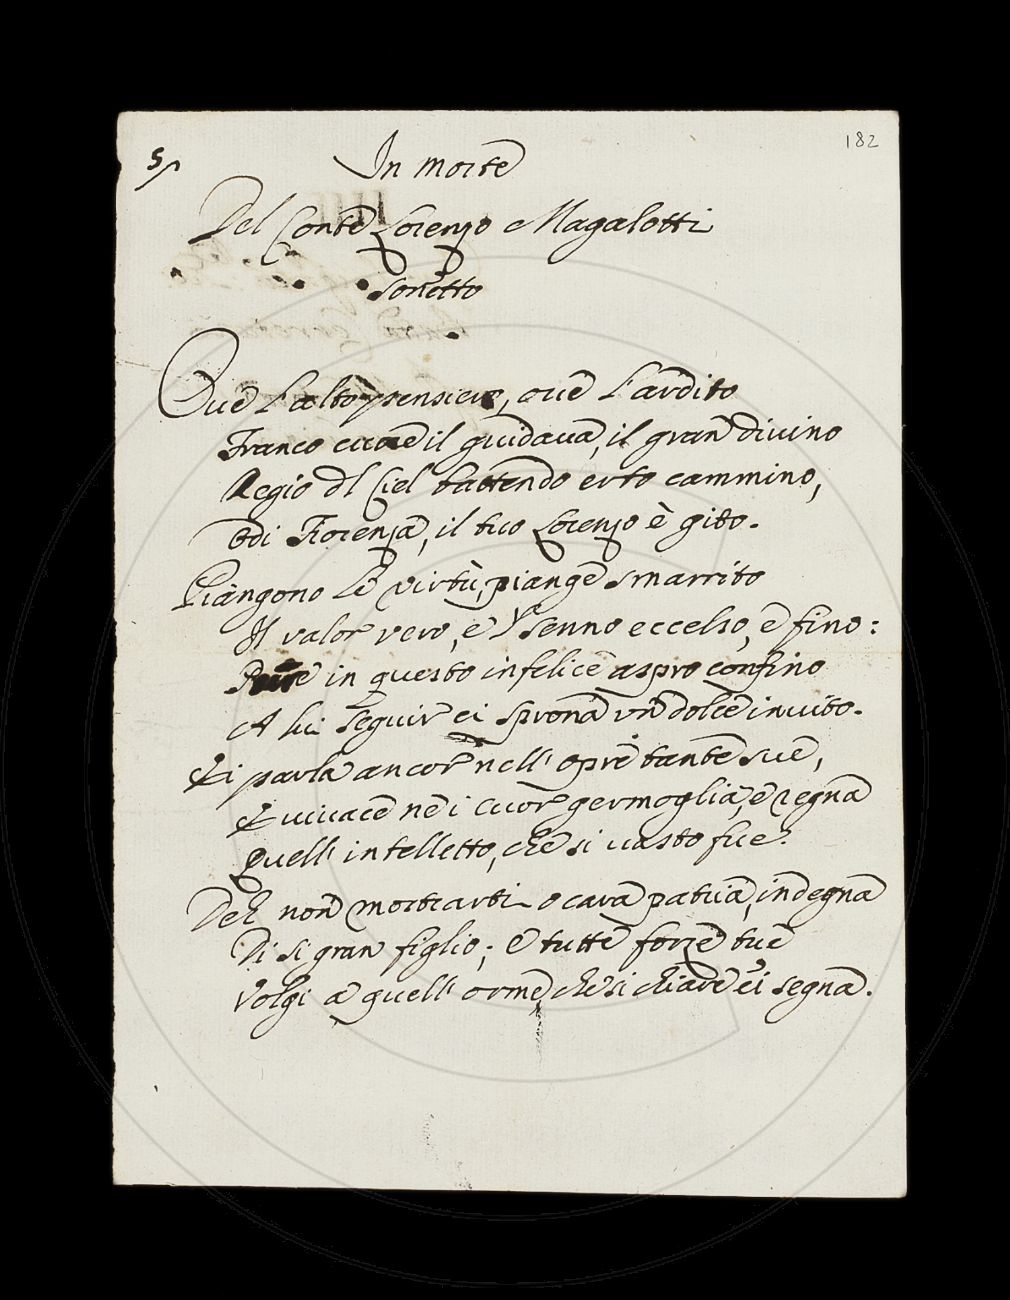 182
5
In morte
Del Conte Lorenzo Magalotti
Sonetto
Ove l'alto pensiero, ove l'ardito
Franco cuore il guidava, il gran divino
Regio del Ciel battendo erto cammino,
Odi Fiorenza, il tuo Lorenzo è gito.
Piangono le virtù, piange smarrito
Il valor vero, e 'l senno eccelso, e fino:
in questo infelice aspro confino
A lui seguir ci sprona un dolce invito.
Ei parla ancor nell' opre tante sue,
E vivace ne i cuor germoglia, e regna
Quell' intelletto, che si vasto fue.
Deh non mostrarti o cara patria, indegna
Di si gran figlio; e tutte forze tue
Volgi a quell' orme, che si chiare ei segna.